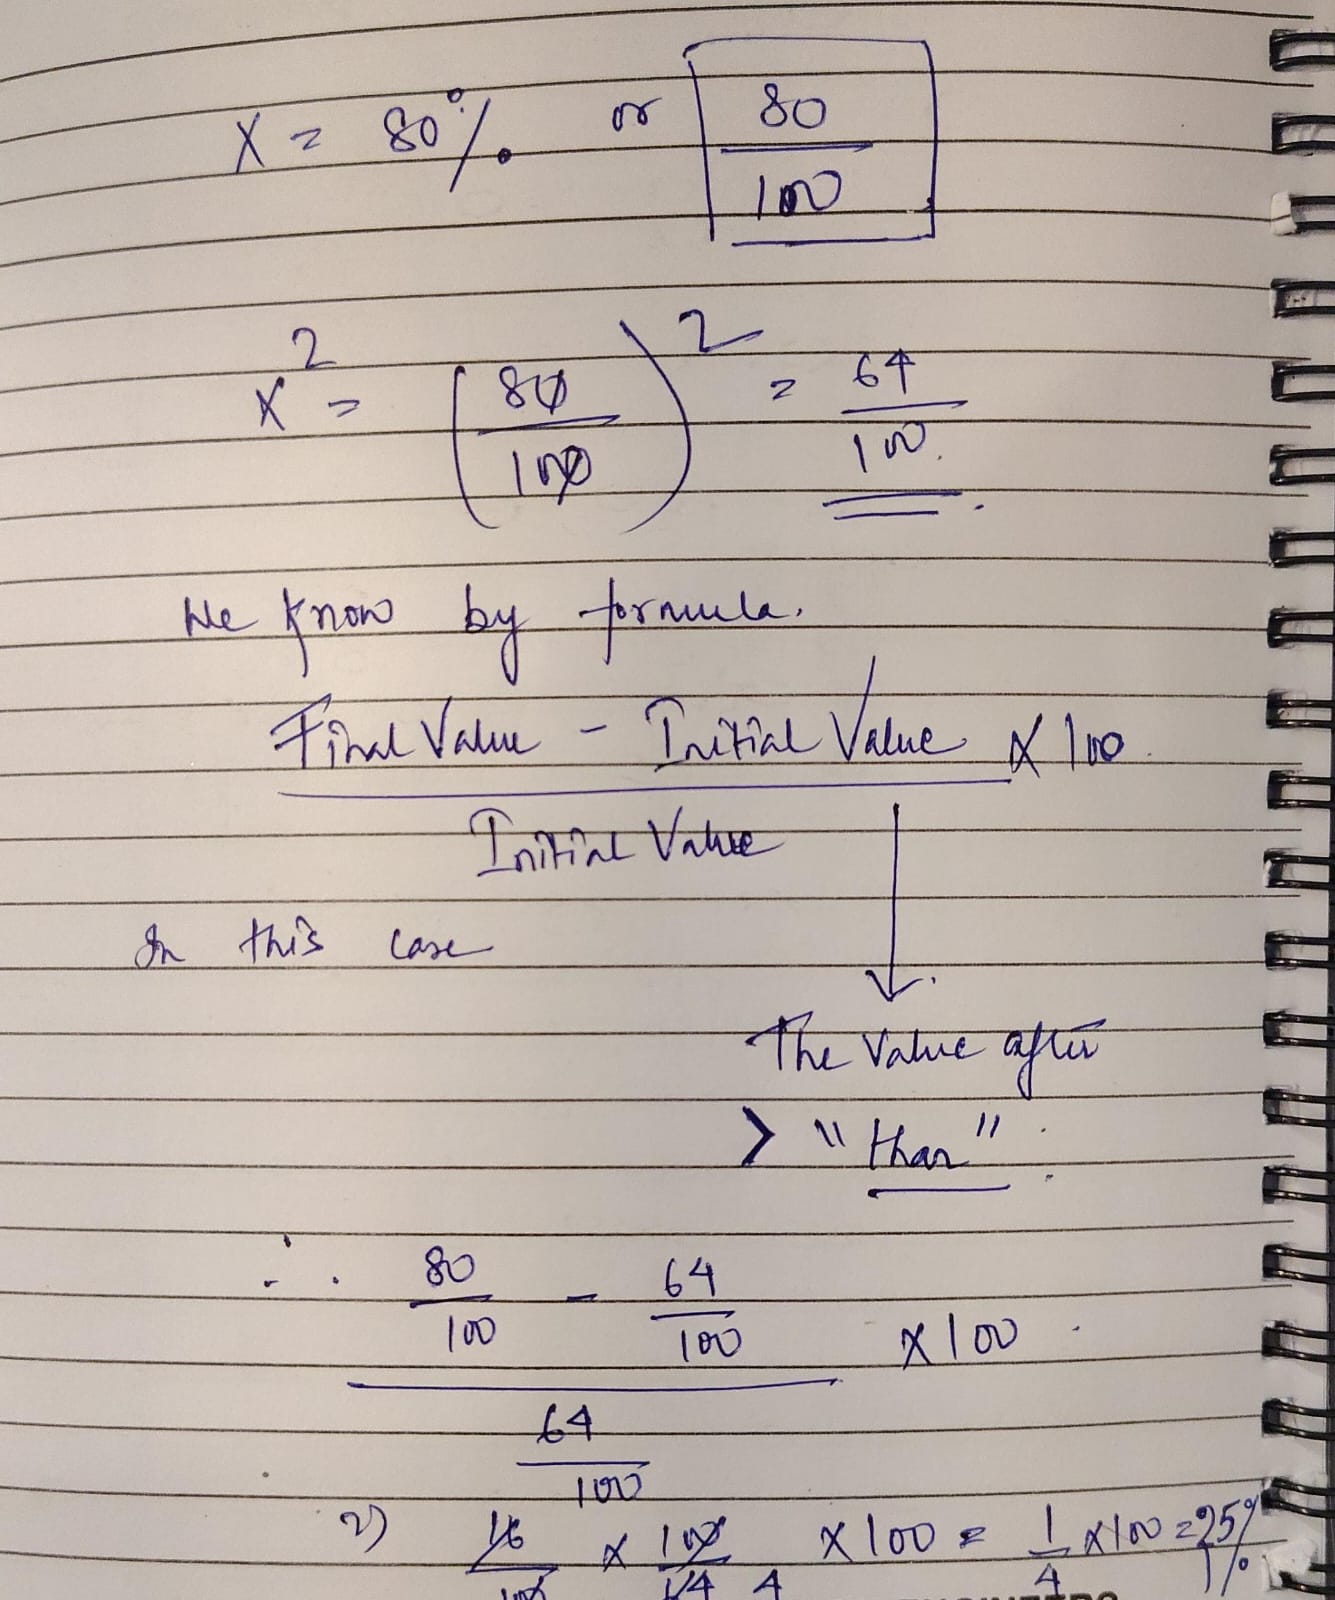 X = 80% or 80/100
X² = (80/100)² = 64/100
We know by formula.
Final Value - Initial Value × 100
Initial Value
In this case
The Value after
> "than"
∴ 80/100 - 64/100 × 100
64/100
=) 16/100 × 100/64 4 × 100 = 1/4 × 100 = 25%